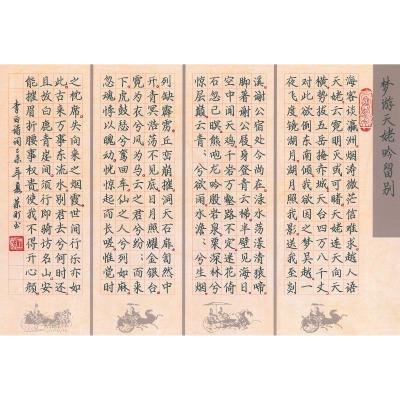 梦游天姥吟留别
海客谈瀛洲烟涛微茫信难求越人语
天姥云霓明灭或可睹天姥连天向天
横势拔五岳掩赤城天台四万八千丈
对此欲倒东南倾我欲因之梦吴越一
夜飞度镜湖月湖月照我影送我至剡
溪谢公宿处今尚在渌水荡漾清猿啼
脚著谢公屐身登青云梯半壁见海日
空中闻天鸡千岩万壑路不定迷花倚
石忽已暝熊咆龙吟殷岩泉栗深林兮
惊层巅云青々兮欲雨水澹々兮生烟
列缺霹雳丘峦崩摧洞天石扉訇然中
开青冥浩荡不见底日月照耀金银台
霓为衣兮风为马云之君兮纷々而来
下虎鼓瑟兮鸾回车仙之人兮列如麻
忽魂悸以魄动恍惊起而长嗟惟觉时
之枕席失向来之烟霞世间行乐亦如
此古来万事东流水别君去兮何时还
且放白鹿青崖间须行即骑访名山安
能摧眉折腰事权贵使我不得开心颜
李白诗词